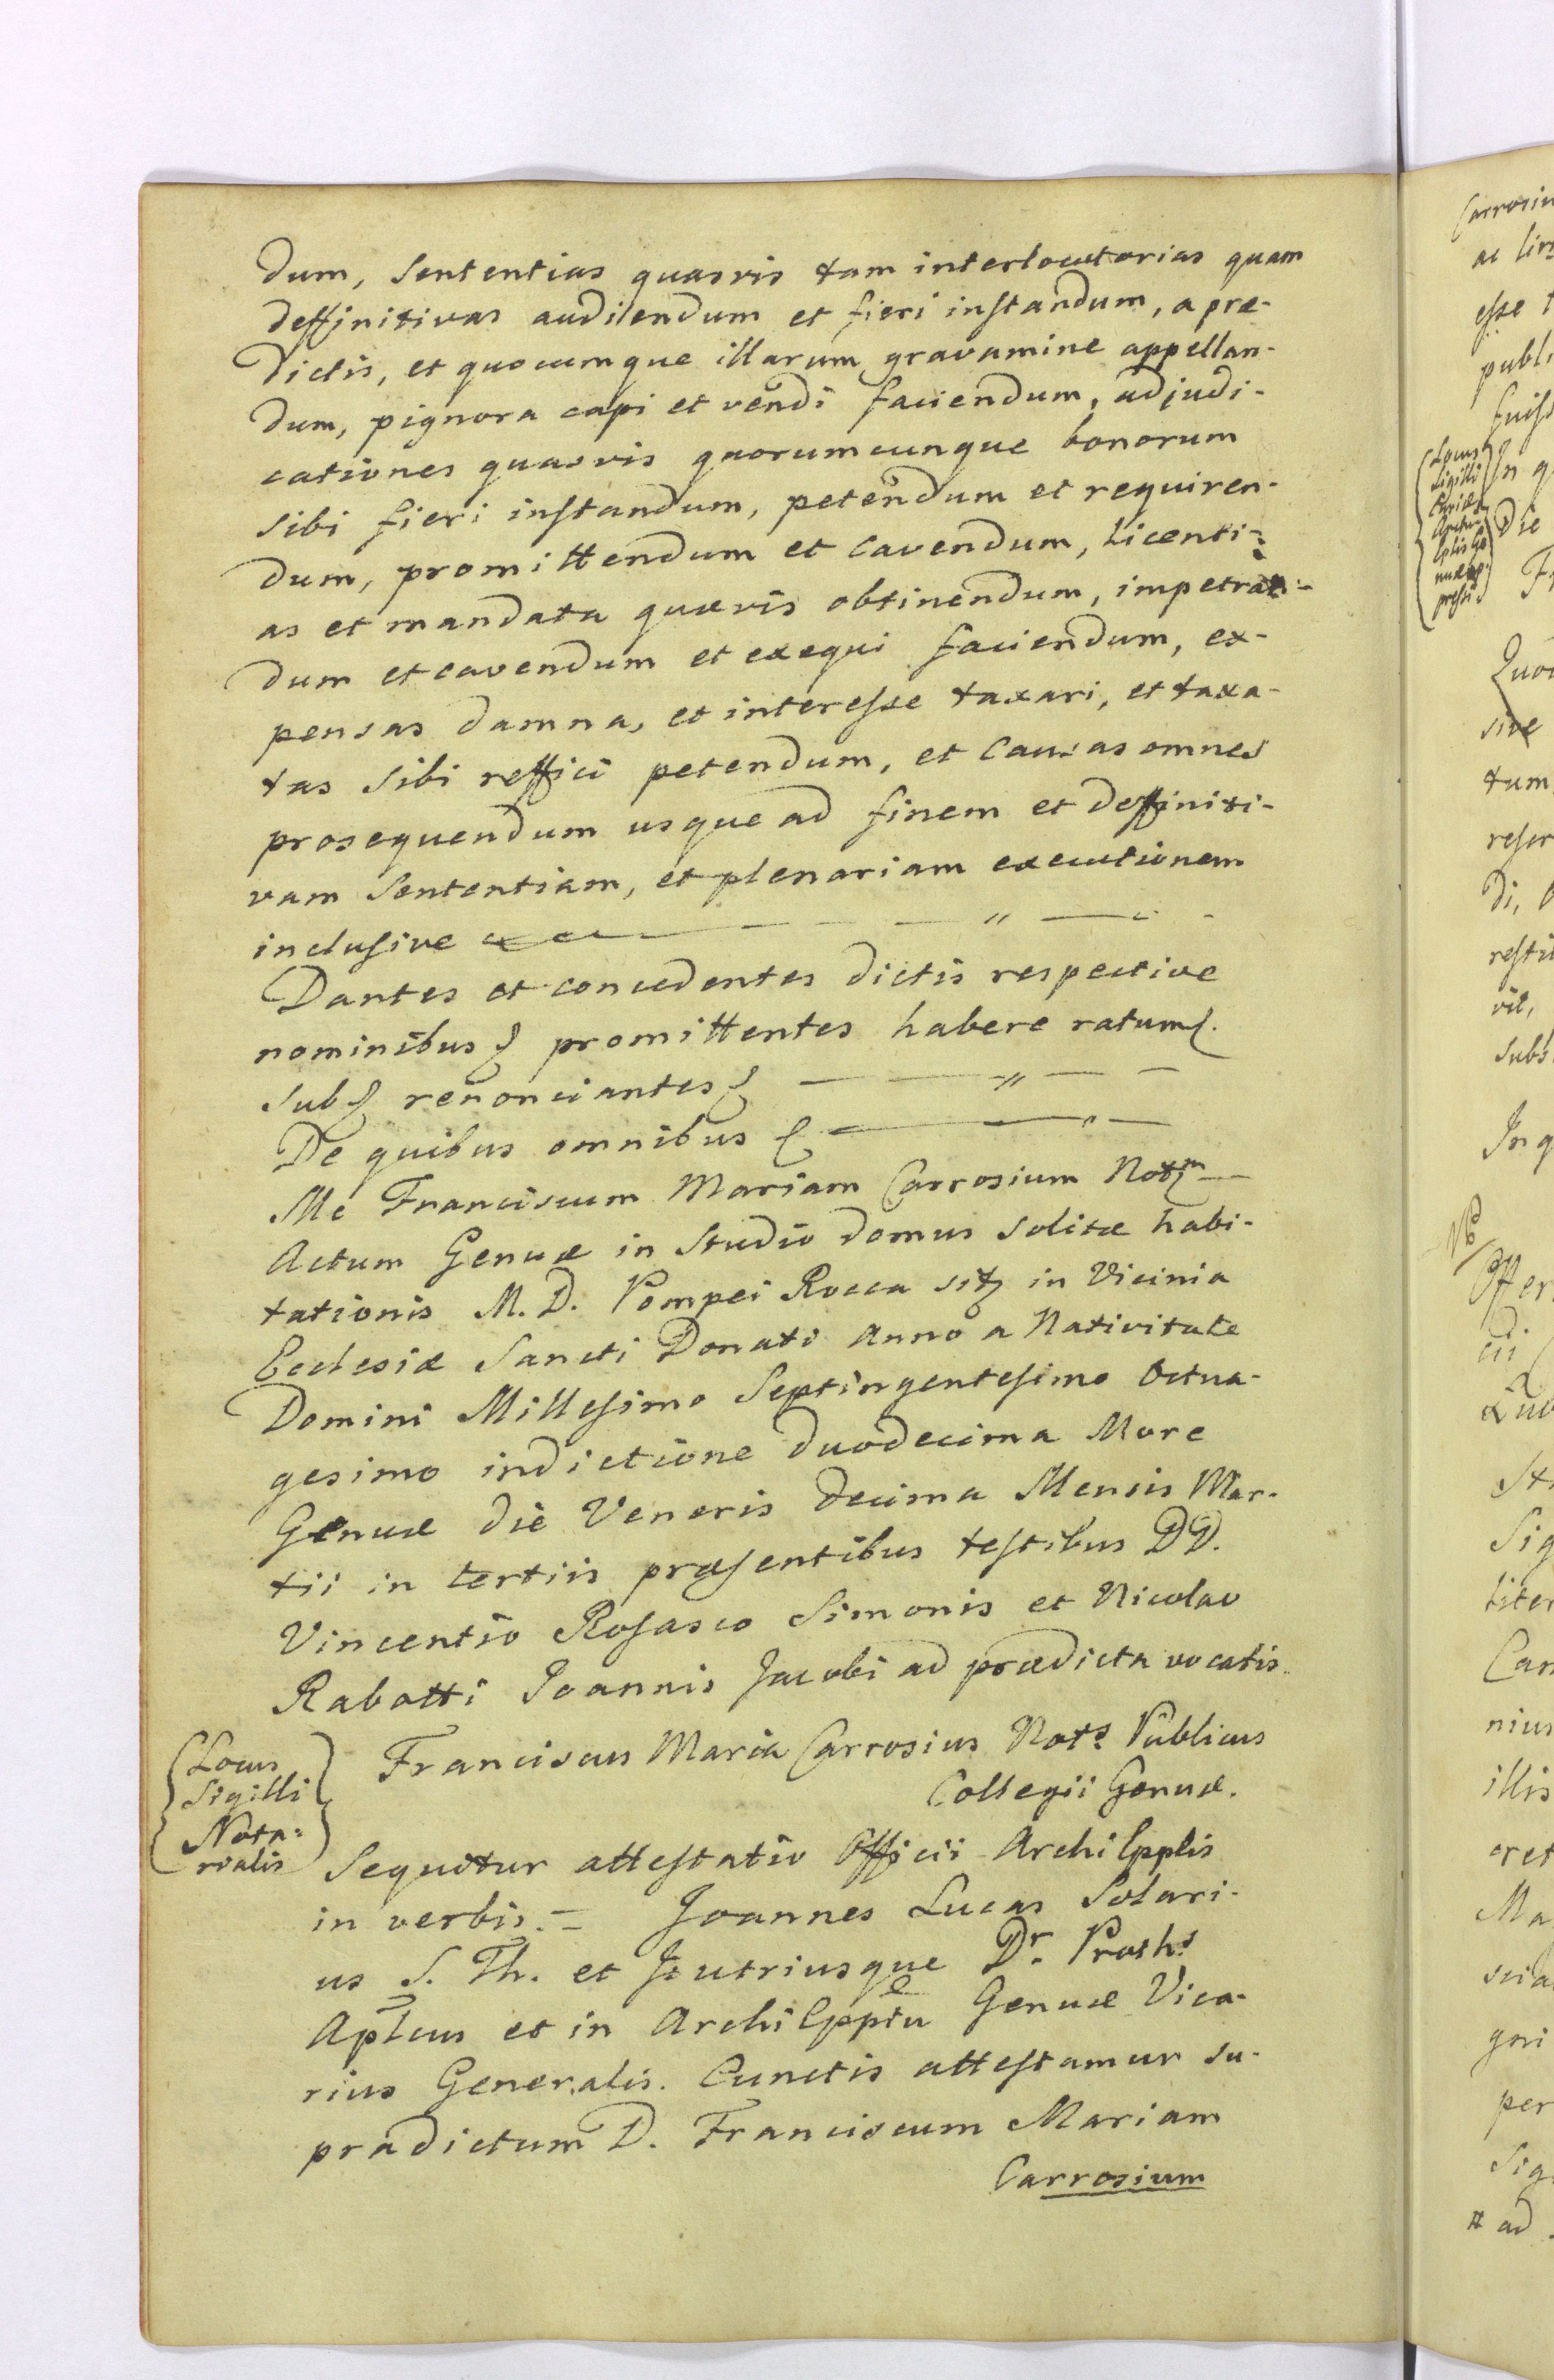 dum, Sententias quasvis tam interlocutorias quam
deffinitivas audiendum et fieri instandum, a præ-
dictis, et quocumque illarum gravamine appellan-
dum, pignora capi et vendi faciendum, adjudi-
cationes quasvis quorumcunque bonorum
sibi fieri instandum, petendum et requiren-
dum, promittendum et cavendum, licenti-
as et mandata quævis obtinendum, impetran-
dum et cavendum et exequi faciendum, ex-
pensas damna, et interesse taxari, et taxa-
tas sibi reffici petendum, et Causas omnes
prosequendum usque ad finem et deffiniti-
vam Sententiam, et plenariam executionem
inclusive
Dantes et concedentes dictis respective
nominibus promittentes habere ratum
sub renonciantes
De quibus omnibus
Me Franciscum Mariam Carrosium Notm
Actum Genuæ in Studio domus solitæ habi-
tationis M. D. Pompei Rocca sit in Vicinia
Ecclesiæ Sancti Donati Anno a Nativitate
Domini Millesimo Septingentesimo Octua-
gesimo indictione duodecima More
Genuæ die Veneris decima Mensis Mar-
tii in tertiis præsentibus testibus DD.
Vincentio Rosasco Simonis et Nicolao
Rabatti Joannis Jacobi ad prædicta vocatis.
Franciscus Maria Carrosius Nots Publicus
Collegii Genuæ.
(Locus
Sigilli
Nota-
rialis)
Sequitur attestatio Officii Archi Epplis
in verbis.= Joannes Lucas Solari-
us S. Th. et J. utriusque Dr. Proths
Aplcus et in Archi Epptu Genuæ Vica-
rius Generalis. Cunctis attestamur su-
pradictum D. Franciscum Mariam
Carrosium
Carrosiu
esse
publi
(Locus
Sigilli
Curiæ
In q
Die
sive
tum
di,
vit,
subs
In q
NB
Offer
Sig
liter
Car
nius
illis
Ma
scia
per
Sig
ad